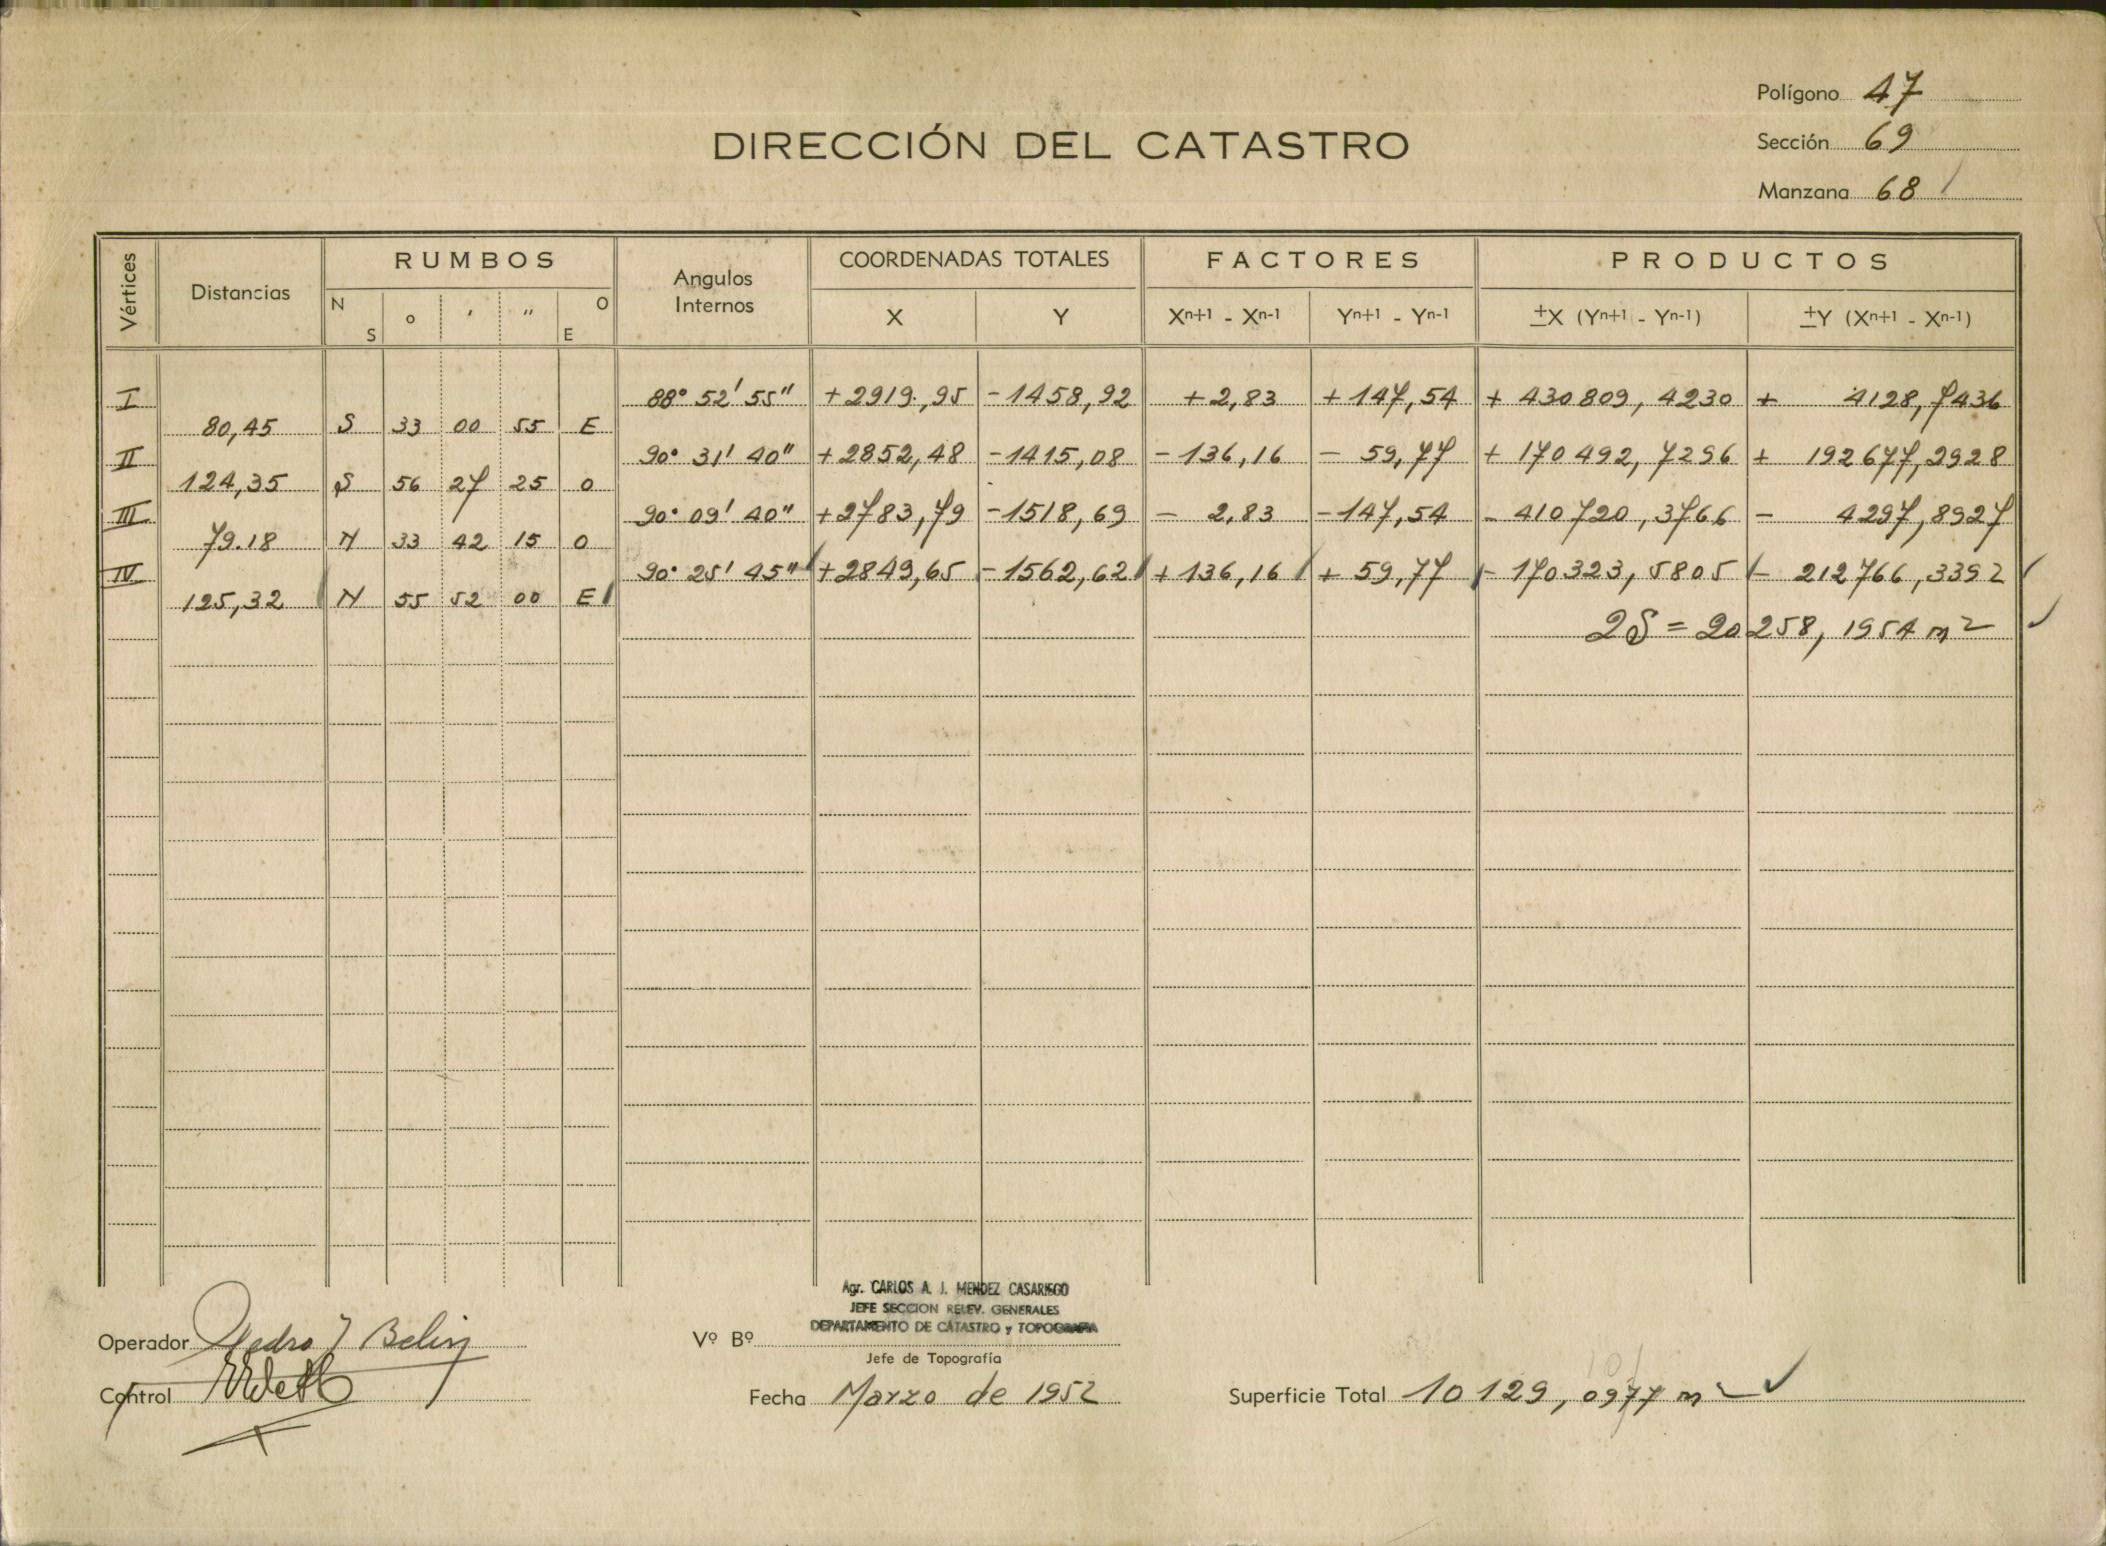 Polígono 47
DIRECCIÓN DEL CATASTRO
Sección 69
Manzana 68
Vértices Distancias RUMBOS Angulos Internos COORDENADAS TOTALES FACTORES PRODUCTOS
N S o ' " O E X Y Xn+1 - Xn-1 Yn+1 - Yn-1 ±X (Yn+1 - Yn-1) ±Y (Xn+1 - Xn-1)
I 88° 52' 55" +2919,95 -1458,92 +2,83 +147,54 + 430809,4230 + 4128,7436
80,45 S 33 00 55 E
II 90° 31' 40" +2852,48 -1415,08 -136,16 - 59,77 + 170492,7296 + 192677,2928
124,35 S 56 27 25 O
III 90° 09' 40" +2783,79 -1518,69 - 2,83 -147,54 - 410720,3766 - 4297,8927
79.18 N 33 42 15 O
IV 90° 25' 45" +2849,65 -1562,62 +136,16 + 59,77 - 170323,5805 - 212766,3392
125,32 N 55 52 00 E
2S = 20258,1954 m2
Agr. CARLOS A. J. MENDEZ CASARIEGO
JEFE SECCION RELEV. GENERALES
DEPARTAMENTO DE CATASTRO y TOPOGRAFIA
Operador Pedro J Belin
Vº Bº
Jefe de Topografía
Control
Fecha Marzo de 1952
Superficie Total 10129,0977 m2